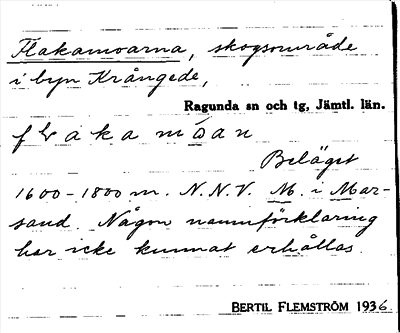 Flakamoarna, skogsområde
i byn Krångede,
Ragunda sn och tg, Jämtl. län.
Beläget
1600-1800 m. N.N.V. M. i Mar-
sand. Någon namnförklaring
har icke kunnat erhållas.
BERTIL FLEMSTRÖM 1936.